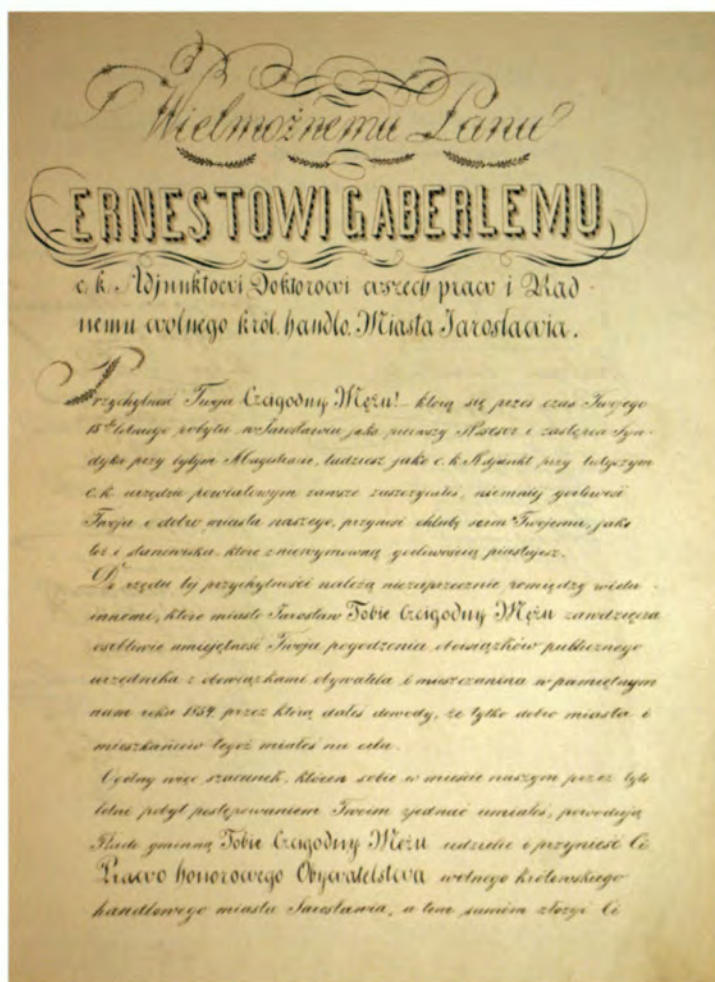 Wielmożnemu Panu
ERNESTOWI GABERLEMU
c. k. Adjunktowi Doktorowi wszech praw i Rad-
nemu wolnego król. handlo. Miasta Jarosławia.
Przychylność Twoja Czcigodny Mężu! którą się przez czas Twojego
15to letniego pobytu w Jarosławiu jako pierwszy Assesor i zastępca Syn-
dyka przy byłym Magistracie, tudzież jako c. k. Adjunkt przy tutejszym
c. k. urzędzie powiatowym zawsze zaszczycałeś, niemniej gorliwość
Twoja o dobro miasta naszego, przynosi chlubę Twojemu, jako
też i stanowisku które z niewymowną gorliwością piastujesz.
Do rzędu tej przychylności należą niezaprzecznie pomiędzy wielu
innemi, które miasto Jarosław Tobie Czcigodny Mężu zawdzięcza
osobliwie umiejętność Twoja pogodzenia obowiązków publicznego
urzędnika z obowiązkami obywatela i mieszczanina w pamiętnym
nam roku 1854 przez którą dałeś dowody, że tylko dobro miasta i
mieszkańców tegoż miałeś na celu.
Ogólny więc szacunek, któren sobie w mieście naszym przez tylo
letni pobyt postępowaniem Twoim zjednać umiałeś, powodują
Radę gminną Tobie Czcigodny Mężu udzielić i przynieść Ci
Prawo honorowego Obywatelstwa wolnego królewskiego
handlowego miasta Jarosławia, a tem samém złożyć Ci